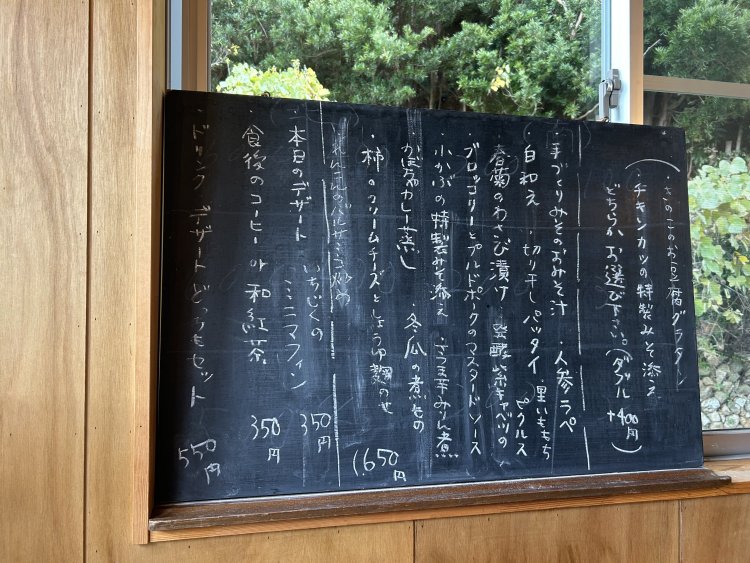 ・きのこのお豆腐グラタン
・チキンカツの特製みそ添え
どちらかお選び下さい。(ダブル+400円)
・手づくりみそのおみそ汁 ・人参ラペ
・白和え ・切り干しパッタイ ・里いももち
・春菊のわさび漬け ・発酵紫キャベツのピクルス
・ブロッコリーとプルドポークのマスタードソース
・小かぶの特製みそ添え ・さつま芋みりん煮
・かぼちゃカレー蒸し ・冬瓜の煮もの
・柿のクリームチーズとしょうゆ麹のせ
・れんこんのバルサミコ炒め
1,650円
・本日のデザート いちじくのミニマフィン 350円
・食後のコーヒー or 和紅茶 350円
・ドリンク デザートどちらもセット 550円